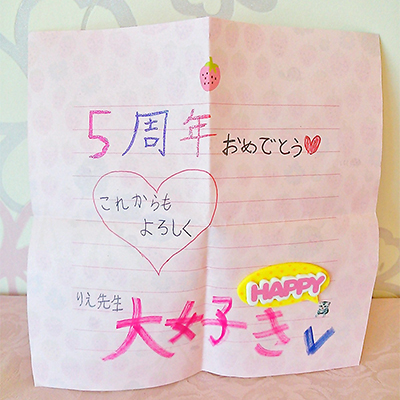 5周年おめでとう♥
これからも
よろしく
りえ先生
HAPPY
大好き